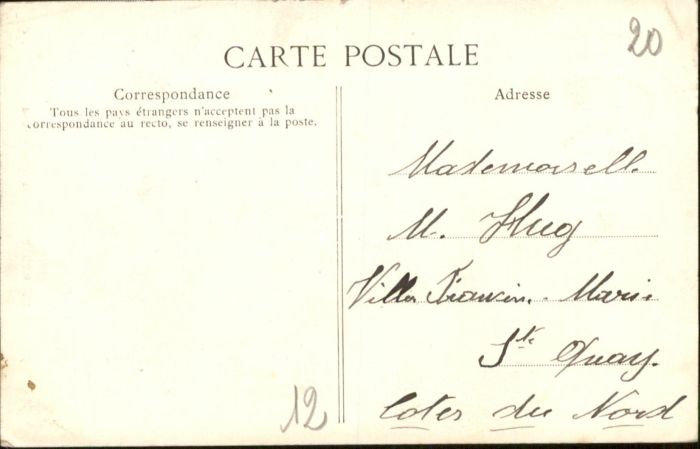 20
CARTE POSTALE
Correspondance
Tous les pays étrangers n'acceptent pas la
correspondance au recto, se renseigner à la poste.
Adresse
Mademoiselle
M. Hug
Villa Francin. Marie
St Quay.
Cotes du Nord
12